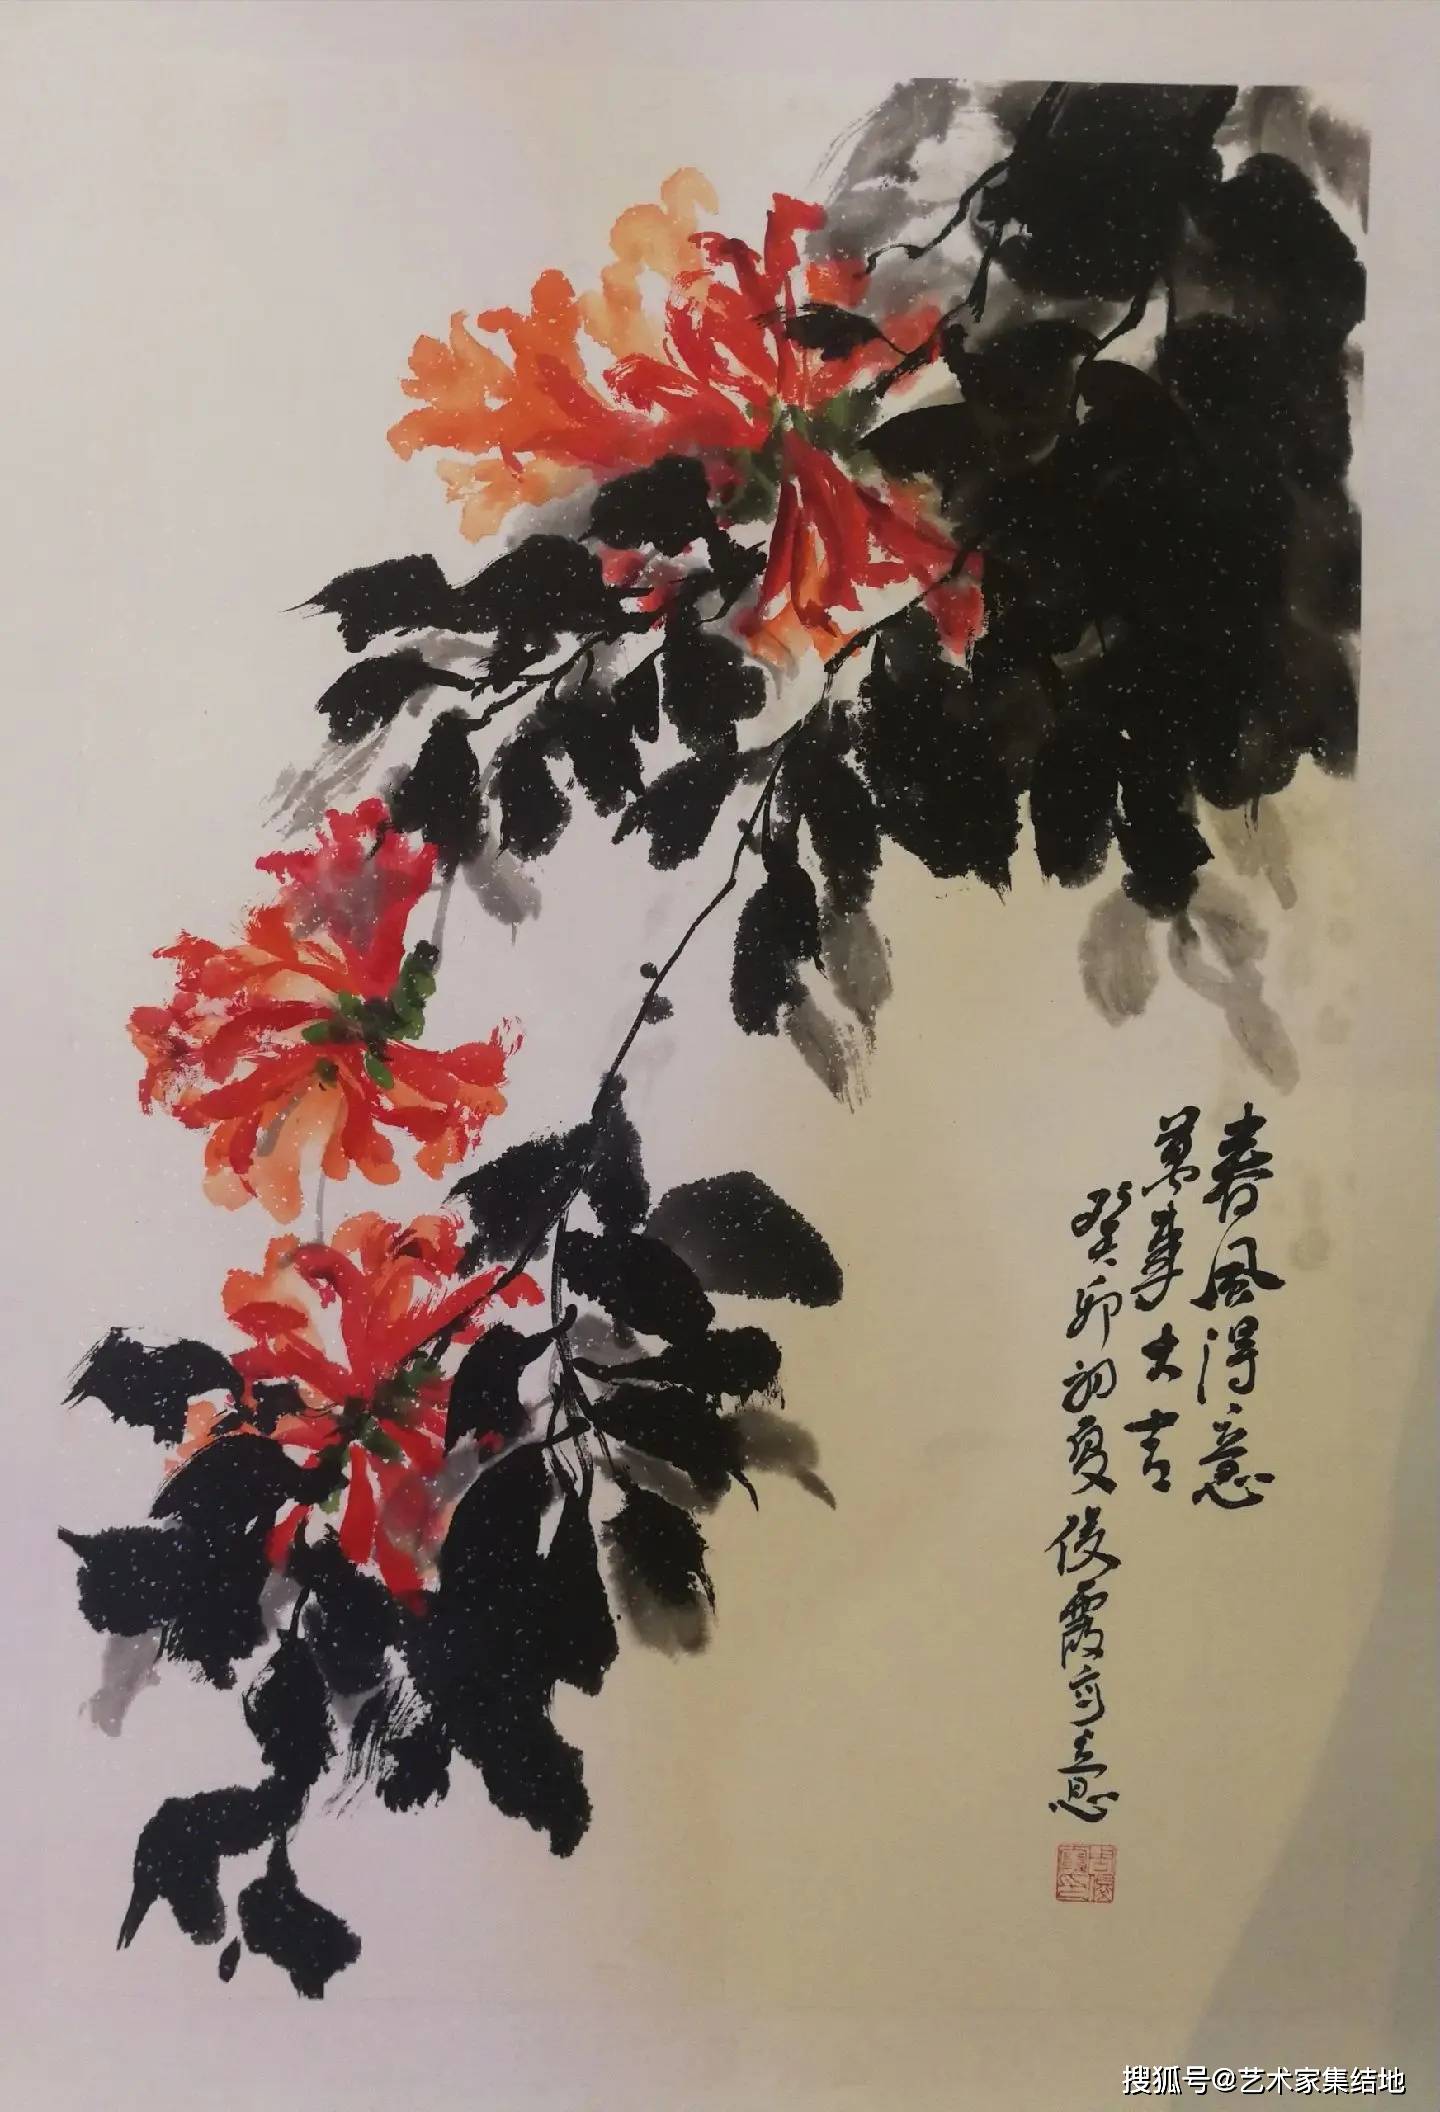 春风得意
萬事大吉
癸卯初夏俊霞写意
搜狐号@艺术家集结地